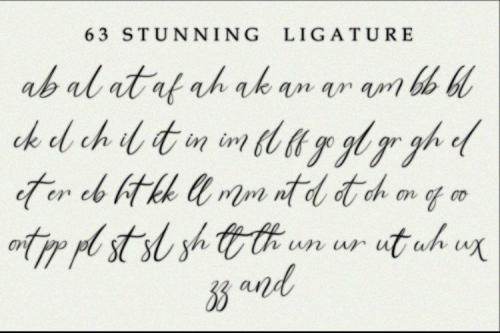 63 STUNNING LIGATURE
ab al at af ah ak an ar am bb bl
ck cl ch il it in im fl ff go gl gr gh el
et er eb ht kk ll mm nt ol ot oh on of oo
ont pp pl st sl sh tt th un ur ut uh ux
zz and